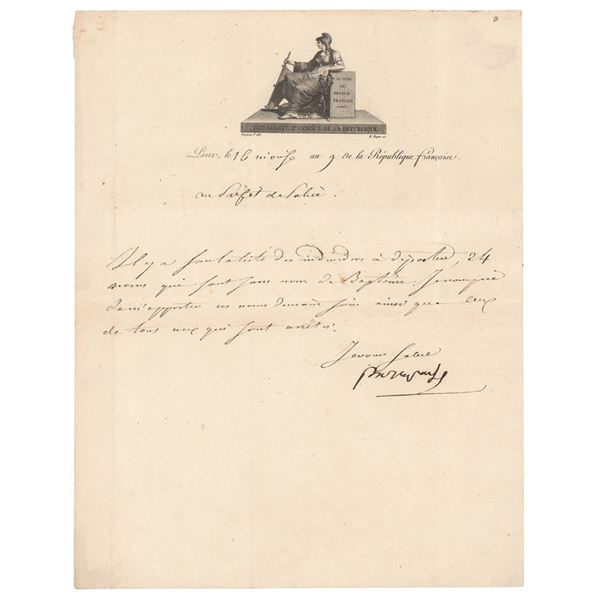 AU NOM
DU
PEUPLE
FRANCAIS
BONAPARTE Ier CONSUL DE LA REPUBLIQUE
Paris, le 16 nivose an 9 de la République française.
au Préfet de Police
Il y a sur la liste des individus à déporter, 24
noms qui sont sans nom de Baptême. Je vous prie
de m'apporter ces noms demain soir ainsi que ceux
de tous ceux qui sont arrêtés.
Je vous salue
Bonaparte